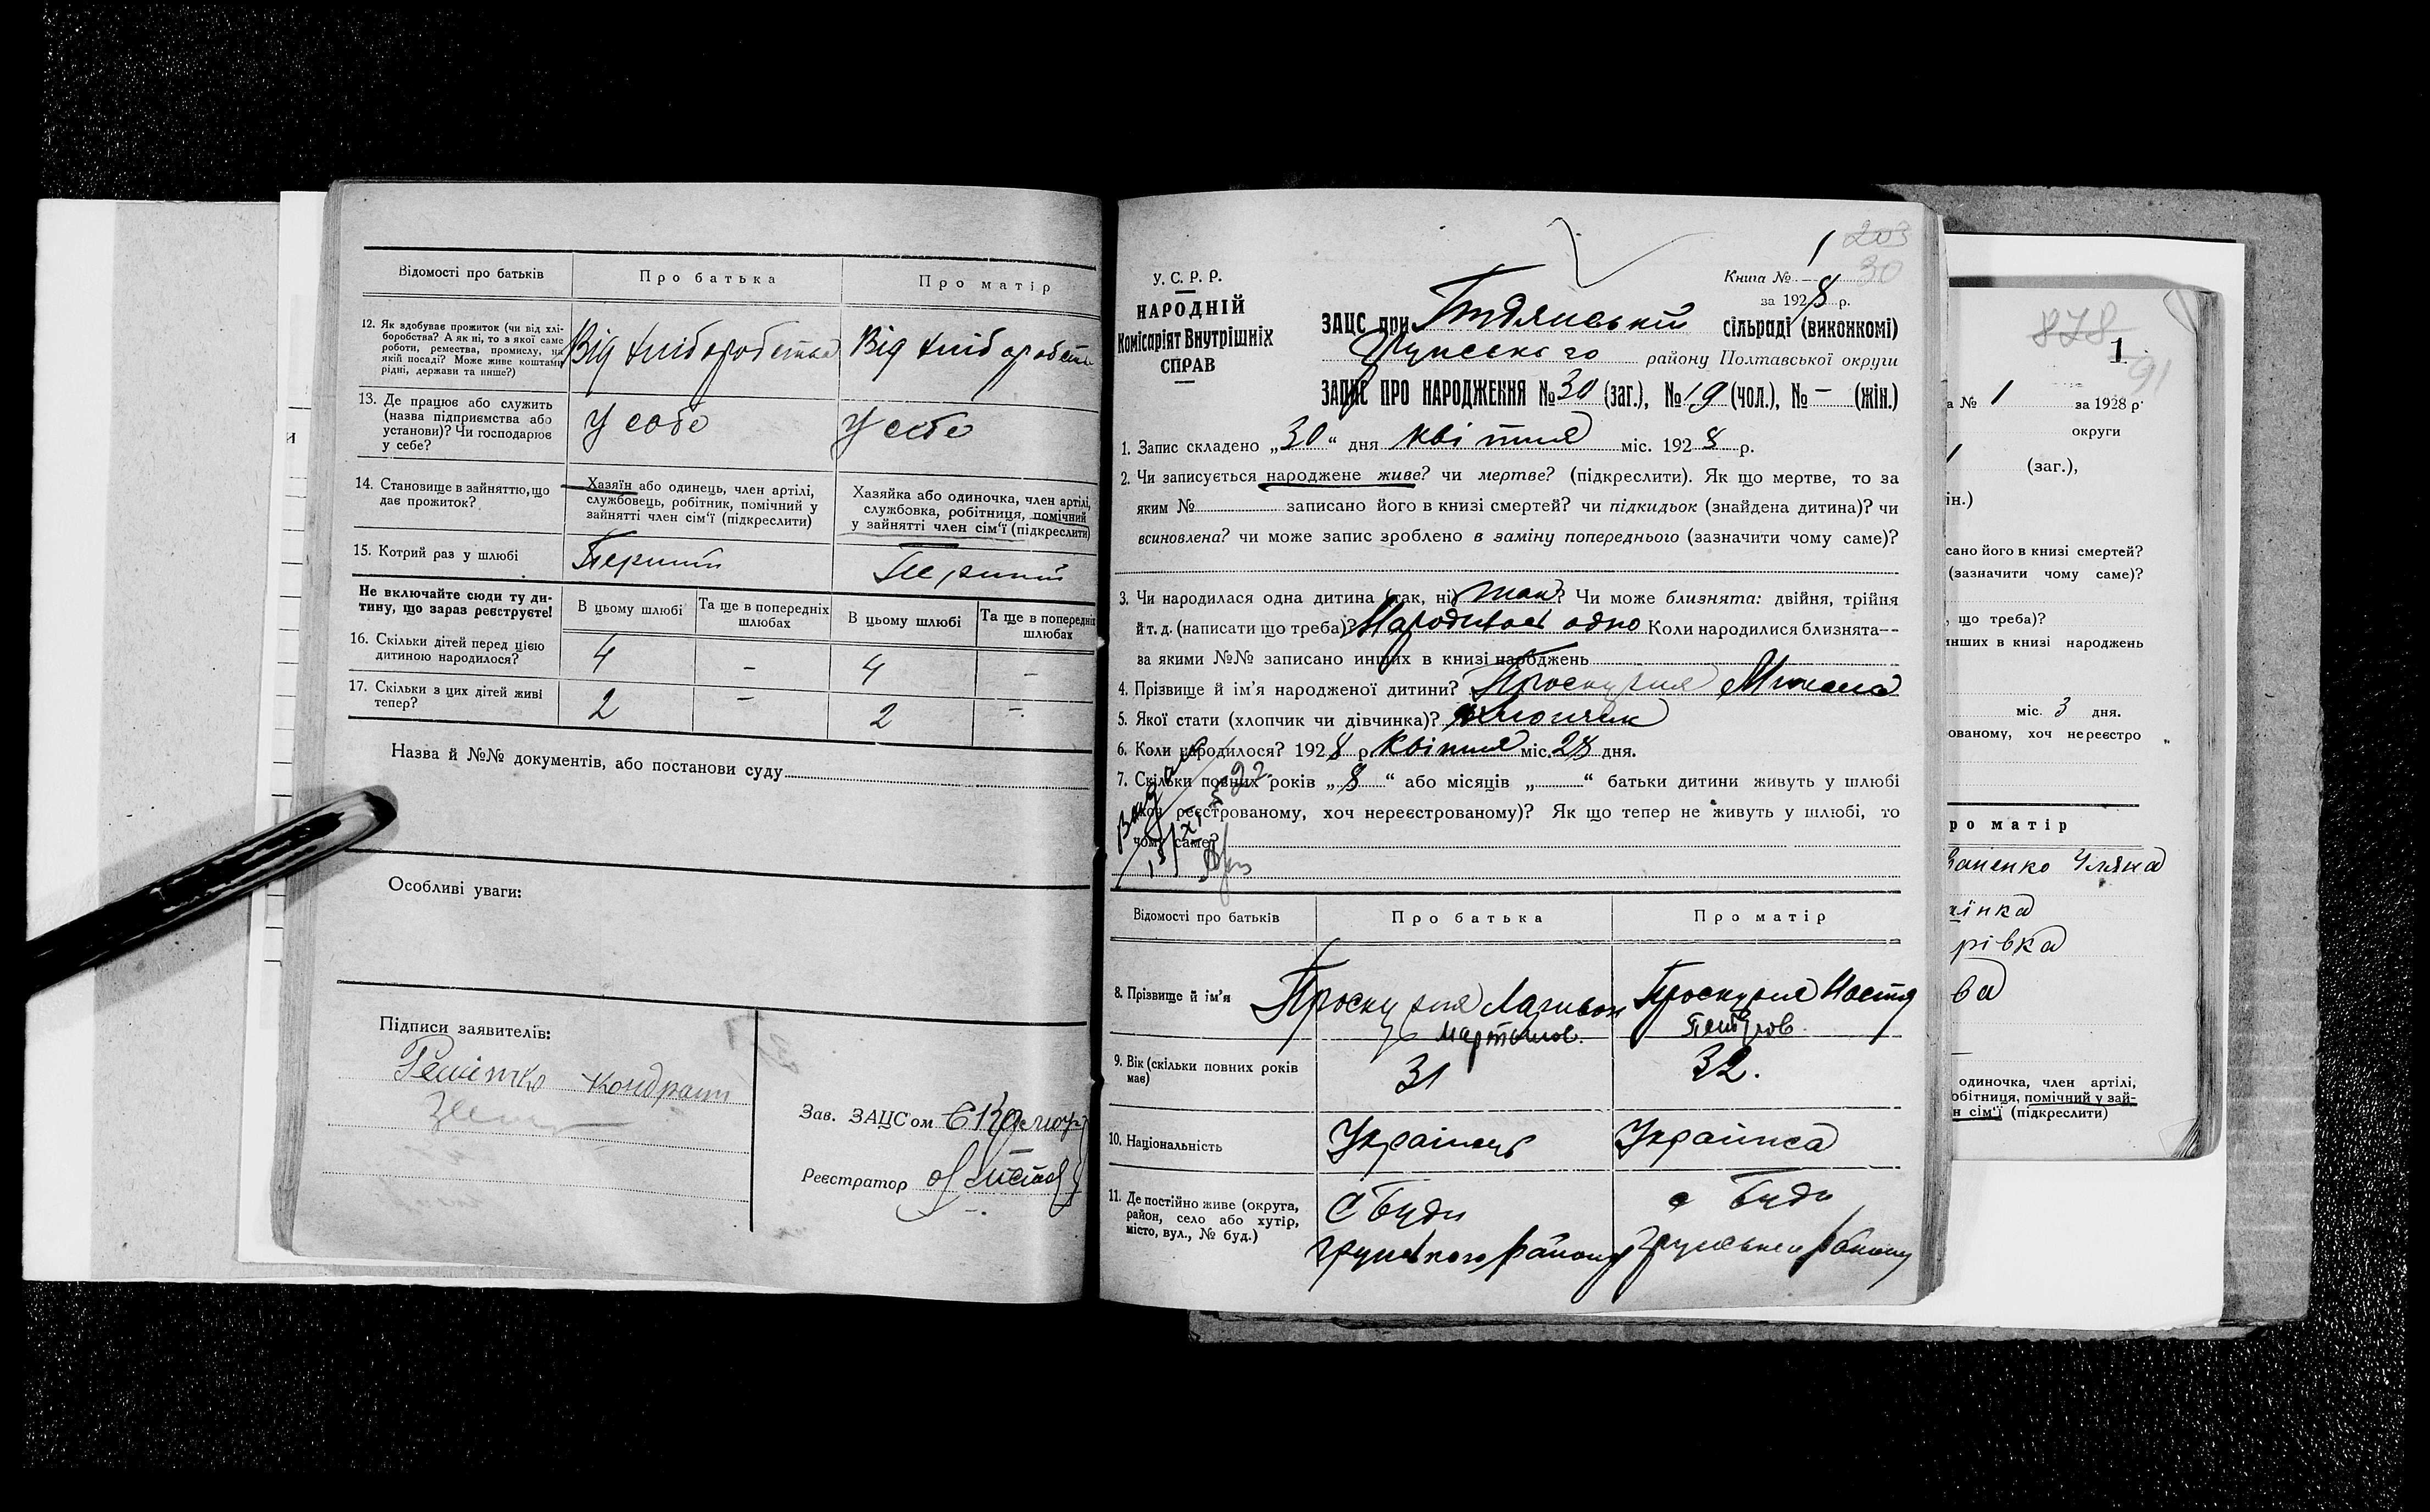 Відомості про батьків
Про батька
Про матір
12. Як здобуває прожиток (чи від хлі-
боробства? А як ні, то з якої саме
роботи, ремества, промислу, на
якій посаді? Може живе коштами
рідні, держави та инше?)
Від хліборобства
Від хліборобств
13. Де працює або служить
(назва підприємства або
установи)? Чи господарює
у себе?
У собе
У себе
14. Становище в зайняттю, що
дає прожиток?
Хазяїн або одинець, член артілі,
службовець, робітник, помічний у
зайнятті член сім'ї (підкреслити)
Хазяйка або одиночка, член артілі,
службовка, робітниця, помічний
у зайнятті член сім'ї (підкреслити)
15. Котрий раз у шлюбі
Перший
Перший
Не включайте сюди ту ди-
тину, що зараз реєструєте!
В цьому шлюбі
Та ще в попередніх
шлюбах
В цьому шлюбі
Та ще в попередніх
шлюбах
16. Скільки дітей перед цією
дитиною народилося?
4 - 4 -
17. Скільки з цих дітей живі
тепер?
2 - 2 -
Назва й №№ документів, або постанови суду
Особливі уваги:
Підписи заявителів:
Решітко Кондрат
Зав. ЗАЦС'ом
Реєстратор
203
30
У. С. Р. Р.
НАРОДНІЙ
Комісаріят Внутрішніх
СПРАВ
Книга № 1
за 1928 р.
ЗАЦС при сільраді (виконкомі)
Грунського району Полтавської округи
ЗАПИС ПРО НАРОДЖЕННЯ № 30 (заг.), № 19 (чол.), № - (жін.)
1. Запис складено „30“ дня квітня міс. 1928 р.
2. Чи записується народжене живе? чи мертве? (підкреслити). Як що мертве, то за
яким № записано його в книзі смертей? чи підкидьок (знайдена дитина)? чи
всиновлена? чи може запис зроблено в заміну попереднього (зазначити чому саме)?
3. Чи народилася одна дитина (так, ні) так? Чи може близнята: двійня, трійня
й т. д. (написати що треба)? Народилось одно Коли народилися близнята—
за якими №№ записано инших в книзі народжень
4. Прізвище й ім'я народженої дитини? Проскурня Микола
5. Якої стати (хлопчик чи дівчинка)? хлопчик
6. Коли народилося? 1928 р. квітня міс. 28 дня.
7. Скільки повних років „8“ або місяців „ “ батьки дитини живуть у шлюбі
(хоч реєстрованому, хоч нереєстрованому)? Як що тепер не живуть у шлюбі, то
чому саме?
Відомості про батьків
Про батька
Про матір
8. Прізвище й ім'я
Проскурня
Мартынов.
Проскурня Настя
Петров.
9. Вік (скільки повних років
має)
31
32.
10. Національність
Українець
Українка
11. Де постійно живе (округа,
район, село або хутір,
місто, вул., № буд.)
С Буди
грунського району
с Буди
грунського району
878
91
1
а № 1 за 1928 р.
округи
(заг.),
ін.)
сано його в книзі смертей?
(зазначити чому саме)?
, що треба)?
инших в книзі народжень
міс. 3 дня.
ованому, хоч нереєстро
ро матір
Уляна
їнка
рівка
ва
одиночка, член артілі,
обітниця, помічний у зай-
н сім'ї (підкреслити)